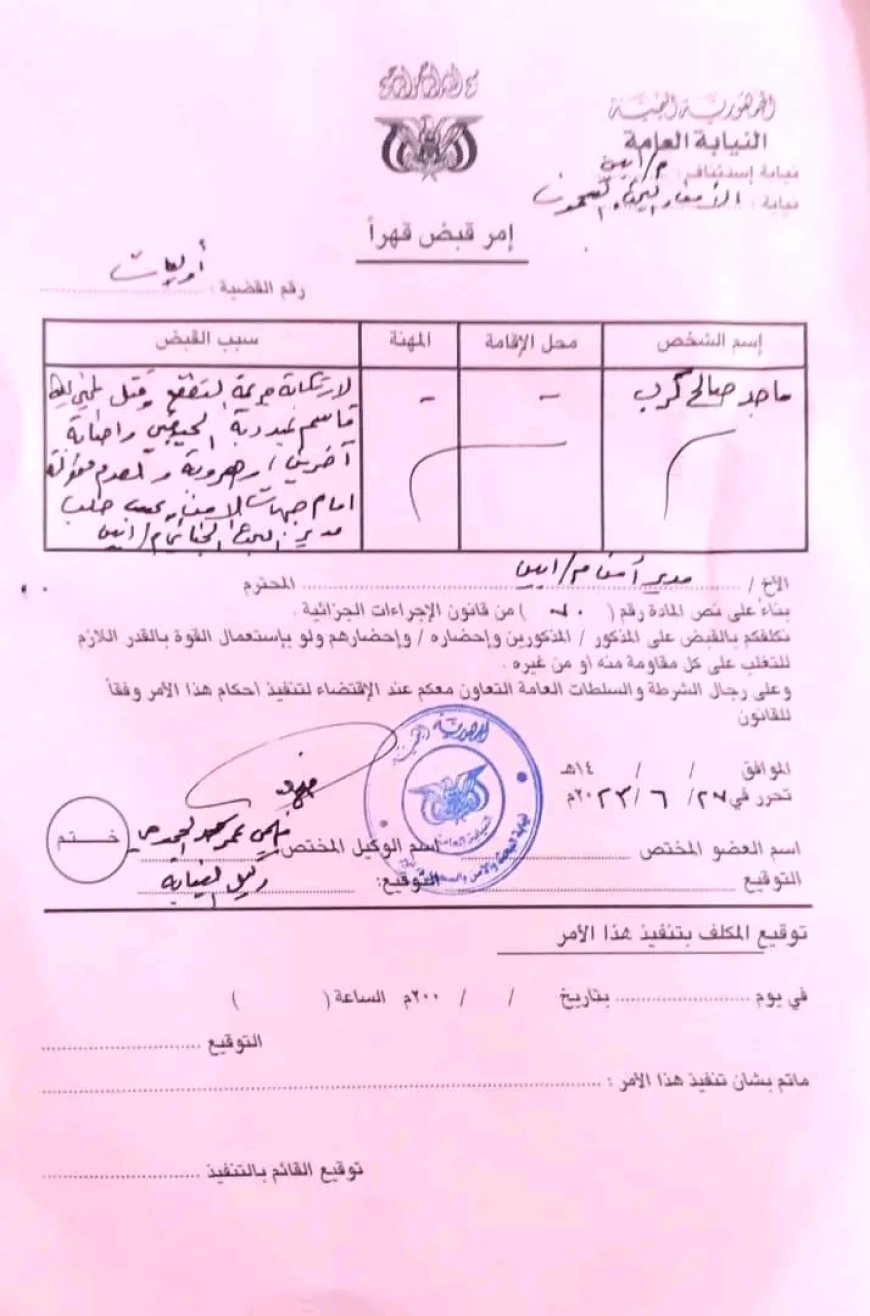 الجمهورية اليمنية
النيابة العامة
نيابة إستئناف : م/ابين
نيابة : الأمن والبحث
امر قبض قهراً
رقم القضية : أوليات
إسم الشخص محل الإقامة المهنة سبب القبض
ماجد صالح كرب - - لارتكابه جريمة التقطع وقتل
قاسم وإصابة
آخرين
امام جهات الامن حسب طلب
مدير البحث الجنائي م/ابين
الأخ / مدير أمن م/ابين المحترم
بناءً على نص المادة رقم ( ٧٠ ) من قانون الإجراءات الجزائية .
نكلفكم بالقبض على المذكور / المذكورين وإحضاره / وإحضارهم ولو بإستعمال القوة بالقدر اللازم
للتغلب على كل مقاومة منه أو من غيره .
وعلى رجال الشرطة والسلطات العامة التعاون معكم عند الإقتضاء لتنفيذ أحكام هذا الأمر وفقاً
للقانون
الموافق / / ١٤هـ
تحرر في ٢٧/ ٦ /٢٠٢٣م
اسم العضو المختص اسم الوكيل المختص
التوقيع التوقيع: وكيل النيابة
ختم
الجمهورية اليمنية
النيابة العامة
توقيع المكلف بتنفيذ هذا الأمر
في يوم بتاريخ / / ٢٠٠م الساعة ( )
التوقيع
ماتم بشان تنفيذ هذا الأمر :
توقيع القائم بالتنفيذ